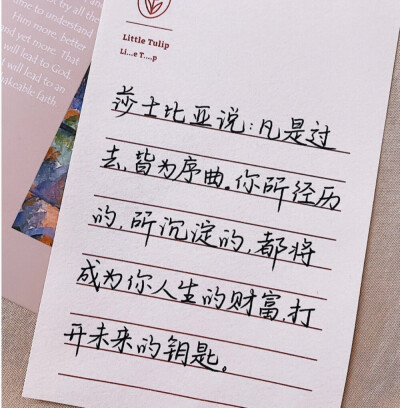 try all the
time to understand
Him more, better
and yet more. That
will lead to God,
will lead to an
unshakeable faith.
Little Tulip
Li...e T....p
莎士比亚说:凡是过
去,皆为序曲。你所经历
的,所沉淀的,都将
成为你人生的财富,打
开未来的钥匙。